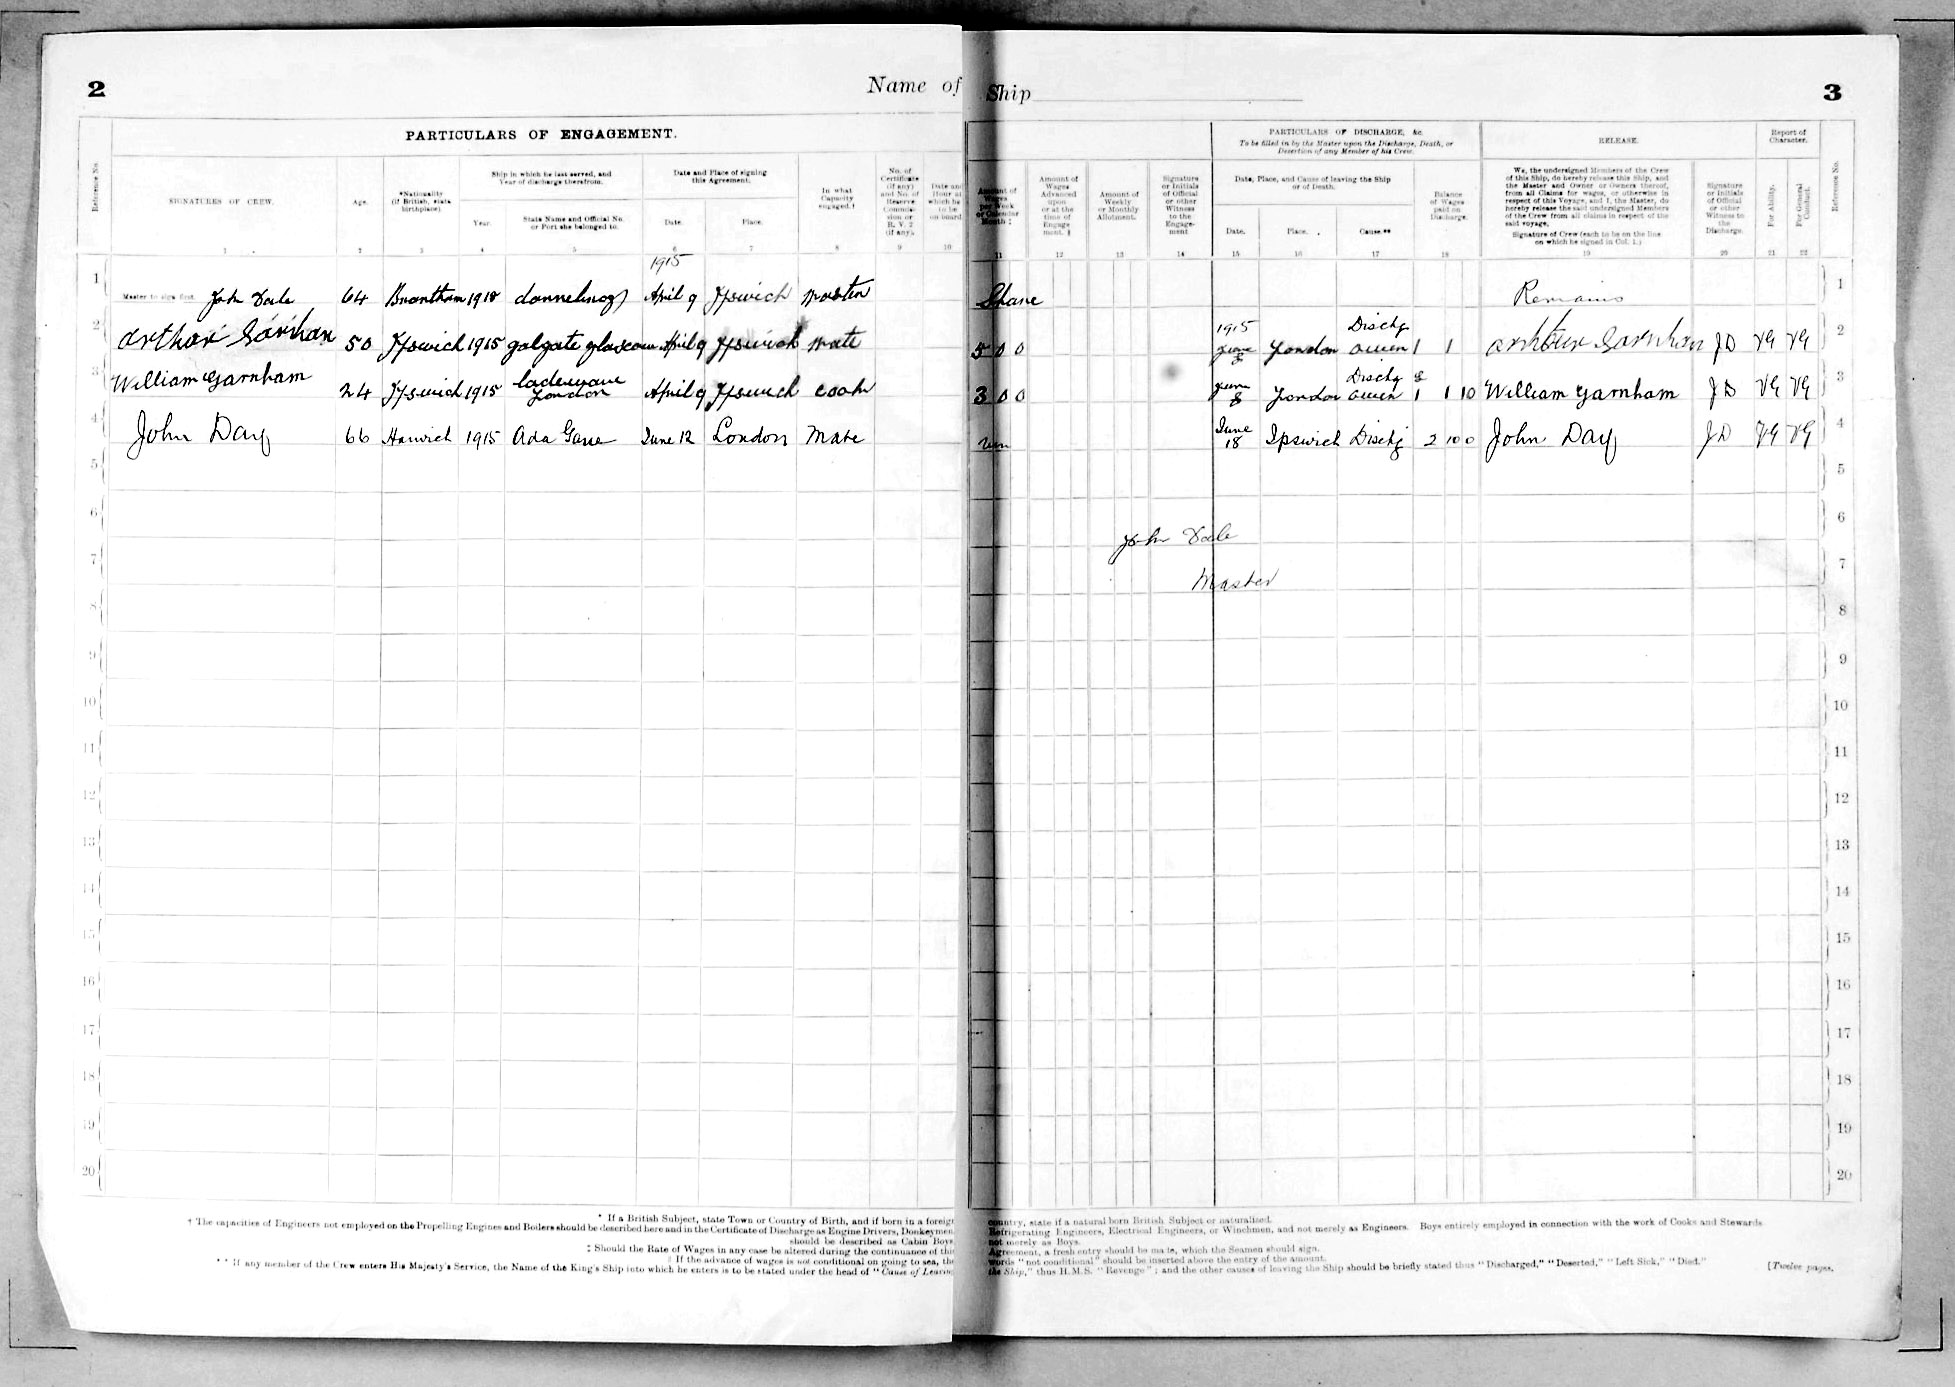 2
Name of Ship
3
PARTICULARS OF ENGAGEMENT.
PARTICULARS OF DISCHARGE, &c.
To be filled in by the Master upon the Discharge, Death, or
Desertion of any Member of his Crew.
RELEASE.
Report of
Character.
Reference No.
SIGNATURES OF CREW.
Age.
*Nationality
(If British, state
birthplace)
Ship in which he last served, and
Year of discharge therefrom.
Year.
State Name and Official No.
or Port she belonged to.
Date and Place of signing
this Agreement.
Date.
Place.
In what
Capacity
engaged.†
No. of
Certificate
(if any)
and No. of
Reserve
Commis-
sion or
R. V. 2
(if any).
Date and
Hour at
which he
to be
on board
Amount of
Wages
per Week
or Calendar
Month ‡
Amount of
Wages
Advanced
upon
or at the
time of
Engage
ment. ‡
Amount of
Weekly
or Monthly
Allotment.
Signature
or Initials
of Official
or other
Witness
to the
Engage-
ment
Date, Place, and Cause of leaving the Ship
or of Death.
Date.
Place.
Cause.**
Balance
of Wages
paid on
Discharge.
We, the undersigned Members of the Crew
of this Ship, do hereby release this Ship, and
the Master and Owner or Owners thereof,
from all Claims for wages, or otherwise in
respect of this Voyage, and I, the Master, do
hereby release the said undersigned Members
of the Crew from all claims in respect of the
said voyage.
Signature of Crew (each to be on the line
on which he signed in Col. 1.)
Signature
or Initials
of Official
or other
Witness to
the
Discharge.
For Ability.
For General
Conduct.
Reference No.
1 2 3 4 5 6 7 8 9 10 11 12 13 14 15 16 17 18 19 20 21 22
1915
1 Master to sign first. John Dale 64 Brantham 1915 April 9 Ipswich Master Share Remains 1
1915 Dischg
2 Arthur Garnham 50 Ipswich 1915 April 9 Ipswich Mate 5 0 0 June 8 London 1 1 Arthur Garnham JD VG VG 2
3 William Garnham 24 Ipswich 1915 London April 9 Ipswich Cook 3 0 0 June 8 London Dischg 1 1 10 William Garnham JD VG VG 3
4 John Day 66 Harwich 1915 Ada Gane June 12 London Mate run June 18 Ipswich Dischg 2 10 0 John Day JD VG VG 4
5 5
6 6
John Dale
7 7
Master
8 8
9 9
10 10
11 11
12 12
13 13
14 14
15 15
16 16
17 17
18 18
19 19
20 20
* If a British Subject, state Town or Country of Birth, and if born in a foreign country, state if a natural born British Subject or naturalized.
† The capacities of Engineers not employed on the Propelling Engines and Boilers should be described here and in the Certificate of Discharge as Engine Drivers, Donkeymen, Refrigerating Engineers, Electrical Engineers, or Winchmen, and not merely as Engineers. Boys entirely employed in connection with the work of Cooks and Stewards
should be described as Cabin Boys not merely as Boys.
‡ Should the Rate of Wages in any case be altered during the continuance of this Agreement, a fresh entry should be made, which the Seamen should sign.
‡ If the advance of wages is not conditional on going to sea, the words "not conditional" should be inserted above the entry of the amount.
** If any member of the Crew enters His Majesty's Service, the Name of the King's Ship into which he enters is to be stated under the head of "Cause of Leaving the Ship," thus H.M.S. "Revenge"; and the other causes of leaving the Ship should be briefly stated thus "Discharged," "Deserted," "Left Sick," "Died."
[Twelve pages.